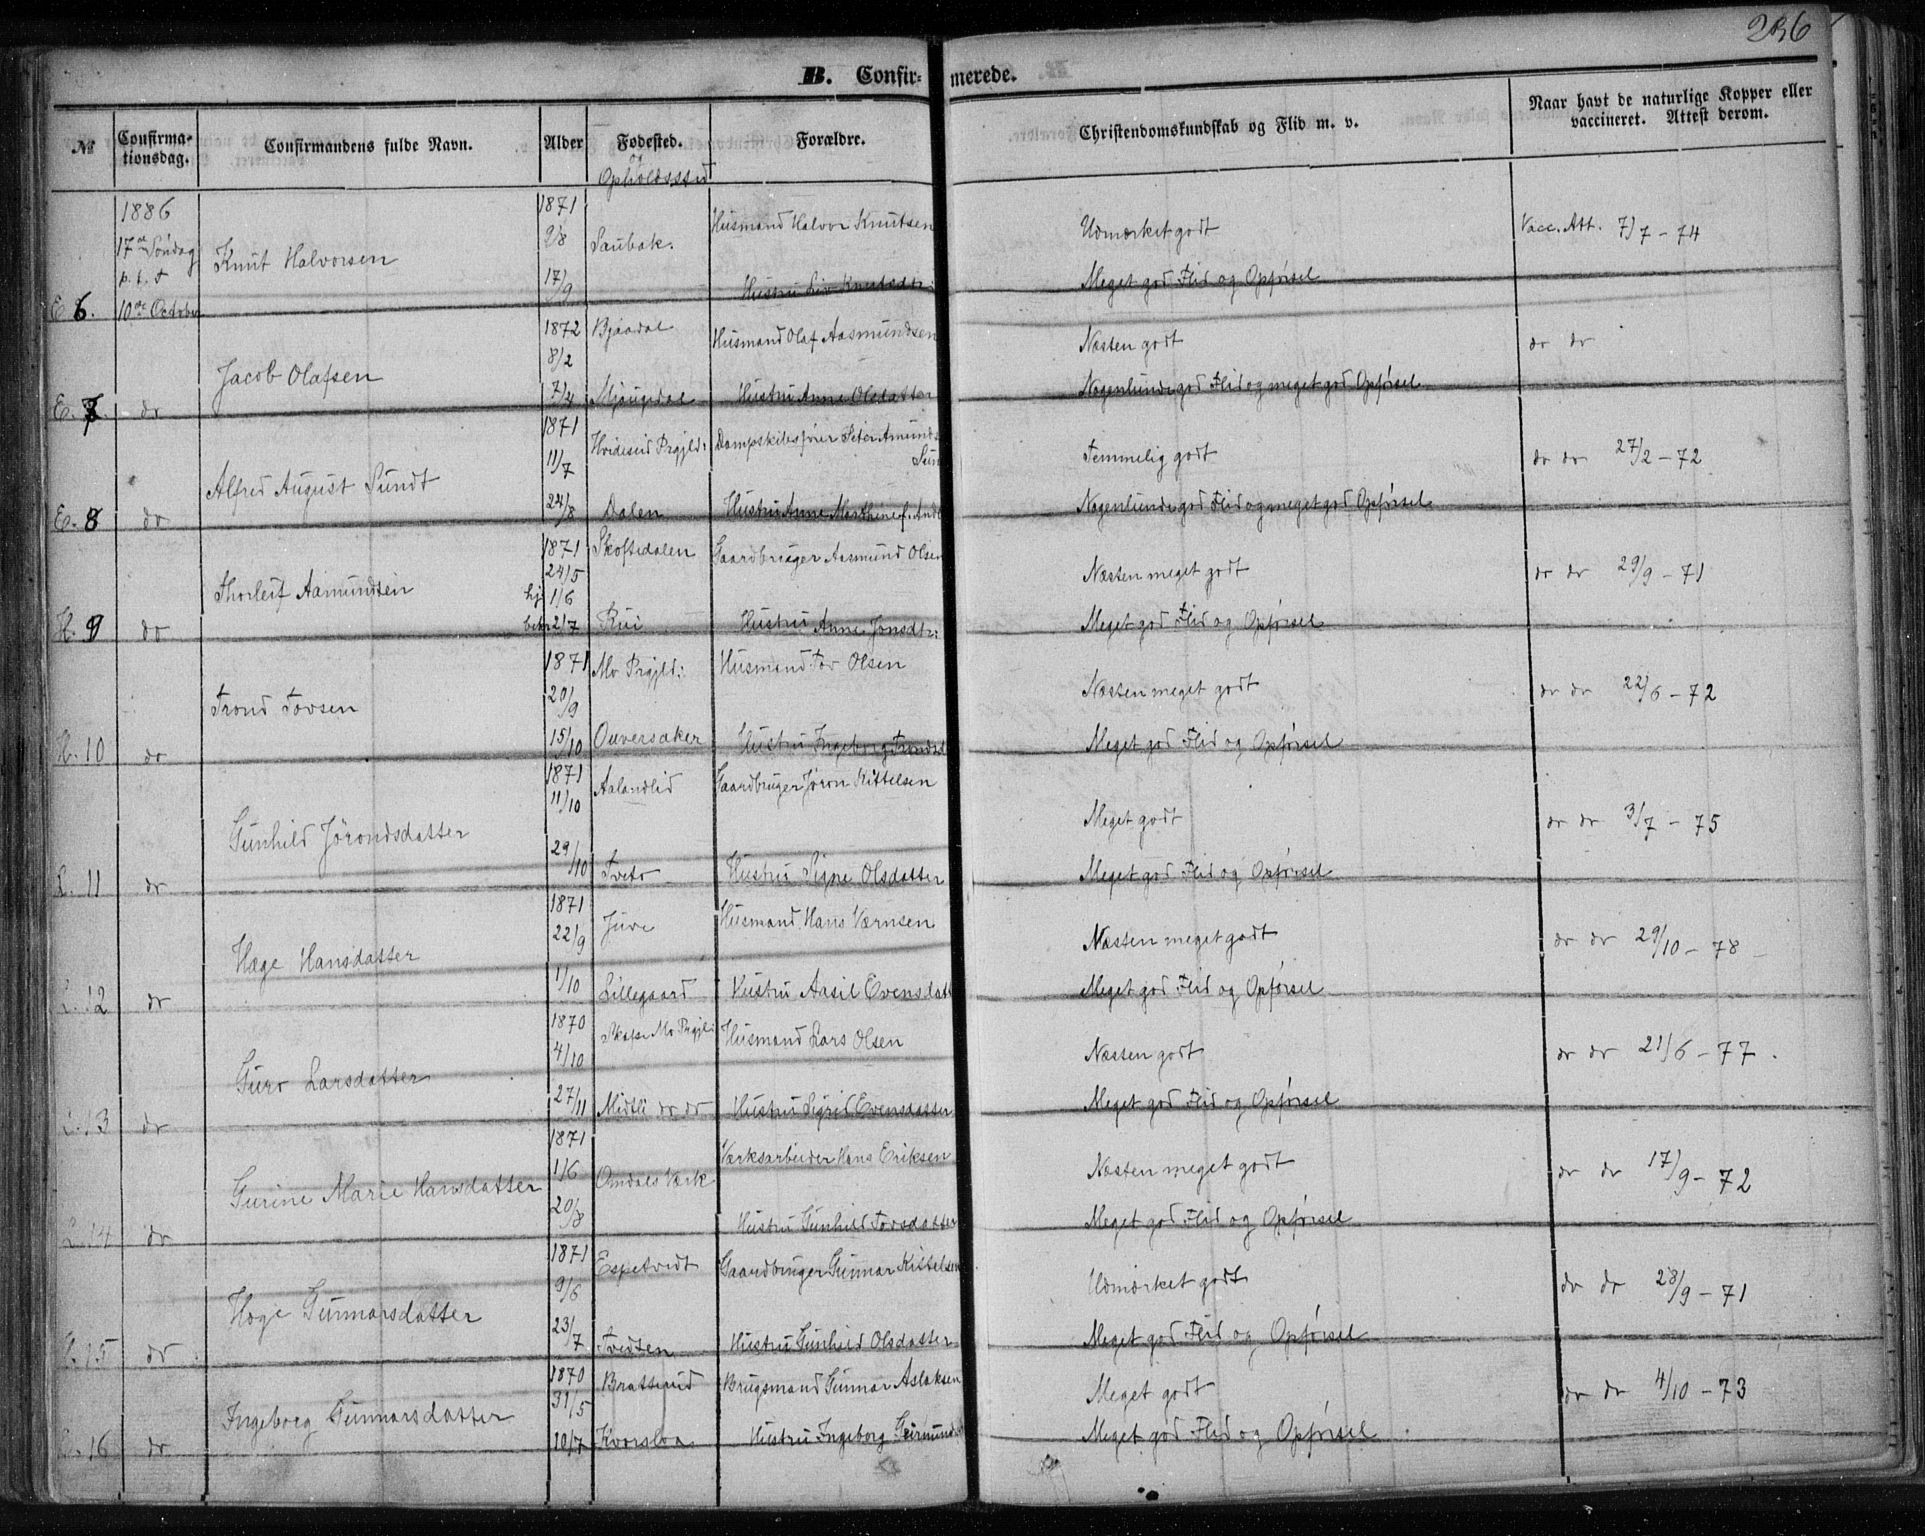 236
B. Confirmerede.
№ Confirmationsdag. Confirmandens fulde Navn. Alder Fødested. og Opholdssted Forældre. Christendomskundskab og Flid m. v. Naar havt de naturlige Kopper eller vaccineret. Attest derom.
1886 1871
17de Søndag 2/8 Saubak. Husmand Halvor Knutsen Udmærket godt Vacc. Att. 7/7 - 74
p. t. Knut Halvorsen
17/9 Hustru Liv Knutsdtr: Meget god Flid og Opførsel
E 6. 10de October
1872 Bjaadal Husmand Olaf Aasmundsen Næsten godt do do
8/2
Jacob Olafsen
E. 7 do 7/4 Hustru Anne Olsdatter Nogenlunde god Flid og meget god Opførsel
1871 Hvideseid Prgjld: Dampskibsfører Peter Amunds
11/7 Temmelig godt do do 27/2 - 72
Alfred August Sundt
E. 8 do 24/8 Dalen Hustru Anne Marthine f. Nogenlunde god Flid og meget god Opførsel
1871 Skoftedalen Gaardbruger Aasmund Olsen
24/5 Næsten meget godt do do 29/9 - 71
Thorleif Aamundsen hj. 1/6
H. 9 do 2/7 Rui Hustru Anne Jonsdtr: Meget god Flid og Opførsel
1871 Mo Prgjld: Husmand Tov Olsen
20/9 Næsten meget godt do do 22/6 - 72
Trond Tovsen
H. 10 do 15/10 Ouversaker Hustru Ingeborg Trondsd Meget god Flid og Opførsel
1871 Aalandlid Gaardbruger Jøron Kittelsen
11/10 Meget godt do do 3/7 - 75
Gunhild Jørondsdatter
L. 11 do 29/10 Tveto Hustru Signe Olsdatter Meget god Flid og Opførsel
1871 Juve Husmand Hans Værnsen
22/9 Næsten meget godt do do 29/10 - 78
Hæge Hansdatter
L. 12 do 1/10 Lillegaard Hustru Aasil Evensdatt Meget god Flid og Opførsel
1870 Skafse Mo Prgjld: Husmand Lars Olsen
4/10 Næsten godt do do 21/6 - 77.
Guro Larsdatter
L. 13 do 27/11 Midtli do do Hustru Sigrid Evensdatter Meget god Flid og Opførsel
1871 Værksarbeider Hans Eriksen
1/6 Omdals Værk Næsten meget godt do do 17/9 - 72
Gurine Marie Hansdatter
L. 14 do 20/8 Hustru Gunhild Tovsdatter Meget god Flid og Opførsel
1871 Espetvedt Gaardbruger Gunnar Kittelsen
9/6 Udmærket godt do do 28/9 - 71
Hæge Gunnarsdatter
L. 15 do 23/7 Tvedten Hustru Gunhild Olsdatter Meget god Flid og Opførsel
1870 Bratterud Brugsmand Gunnar Aslaksen Meget godt do do 4/10 - 73
31/5
Ingeborg Gunnarsdatter
L. 16 do 10/7 Kvorsloa Hustru Ingeborg Geirmunds Meget god Flid og Opførsel